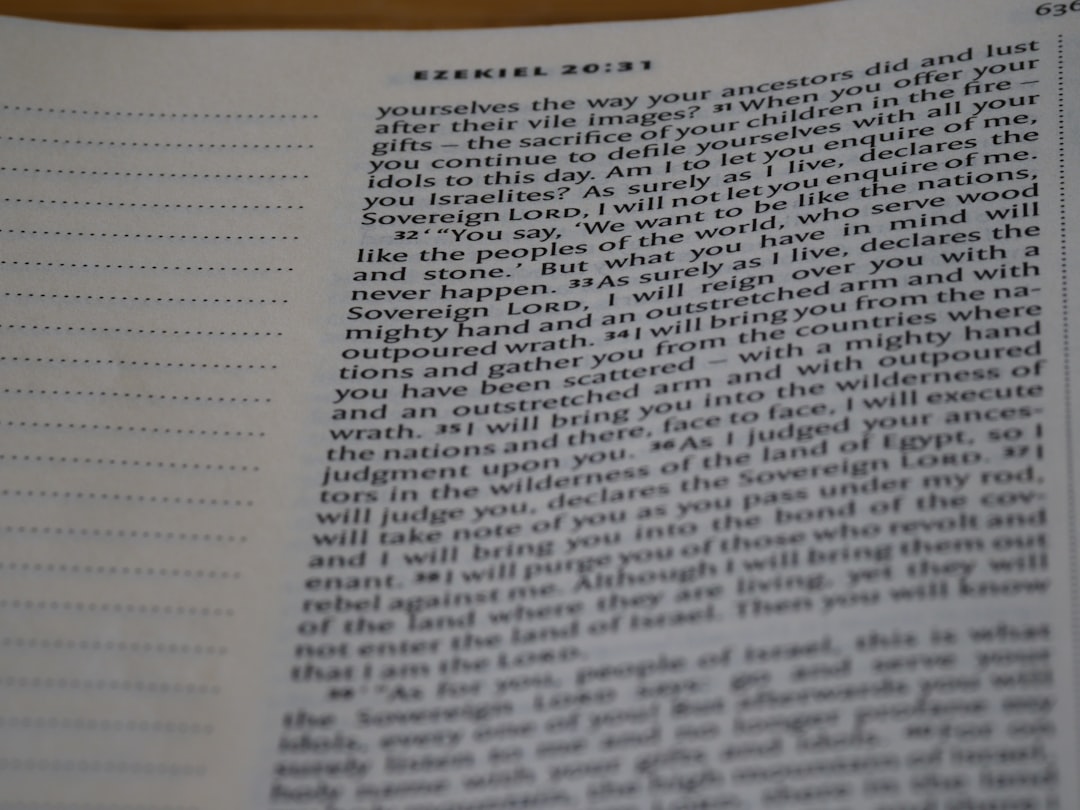 636
EZEKIEL 20:31
yourselves the way your ancestors did and lust
after their vile images? 31 When you offer your
gifts – the sacrifice of your children in the fire –
you continue to defile yourselves with all your
idols to this day. Am I to let you enquire of me,
you Israelites? As surely as I live, declares the
Sovereign LORD, I will not let you enquire of me.
32 ‘ “You say, ‘We want to be like the nations,
like the peoples of the world, who serve wood
and stone.’ But what you have in mind will
never happen. 33 As surely as I live, declares the
Sovereign LORD, I will reign over you with a
mighty hand and an outstretched arm and with
outpoured wrath. 34 I will bring you from the na-
tions and gather you from the countries where
you have been scattered – with a mighty hand
and an outstretched arm and with outpoured
wrath. 35 I will bring you into the wilderness of
the nations and there, face to face, I will execute
judgment upon you. 36 As I judged your ances-
tors in the wilderness of the land of Egypt, so I
will judge you, declares the Sovereign LORD. 37 I
will take note of you as you pass under my rod,
and I will bring you into the bond of the cov-
enant. 38 I will purge you of those who revolt and
rebel against me. Although I will bring them out
of the land where they are living, yet they will
not enter the land of Israel. Then you will know
that I am the LORD.
39 ‘ “As for you, people of Israel, this is what
the Sovereign LORD says: go and serve your
idols, every one of you! But afterwards you will
surely listen to me and no longer profane my
holy name with your gifts and idols. 40 For on